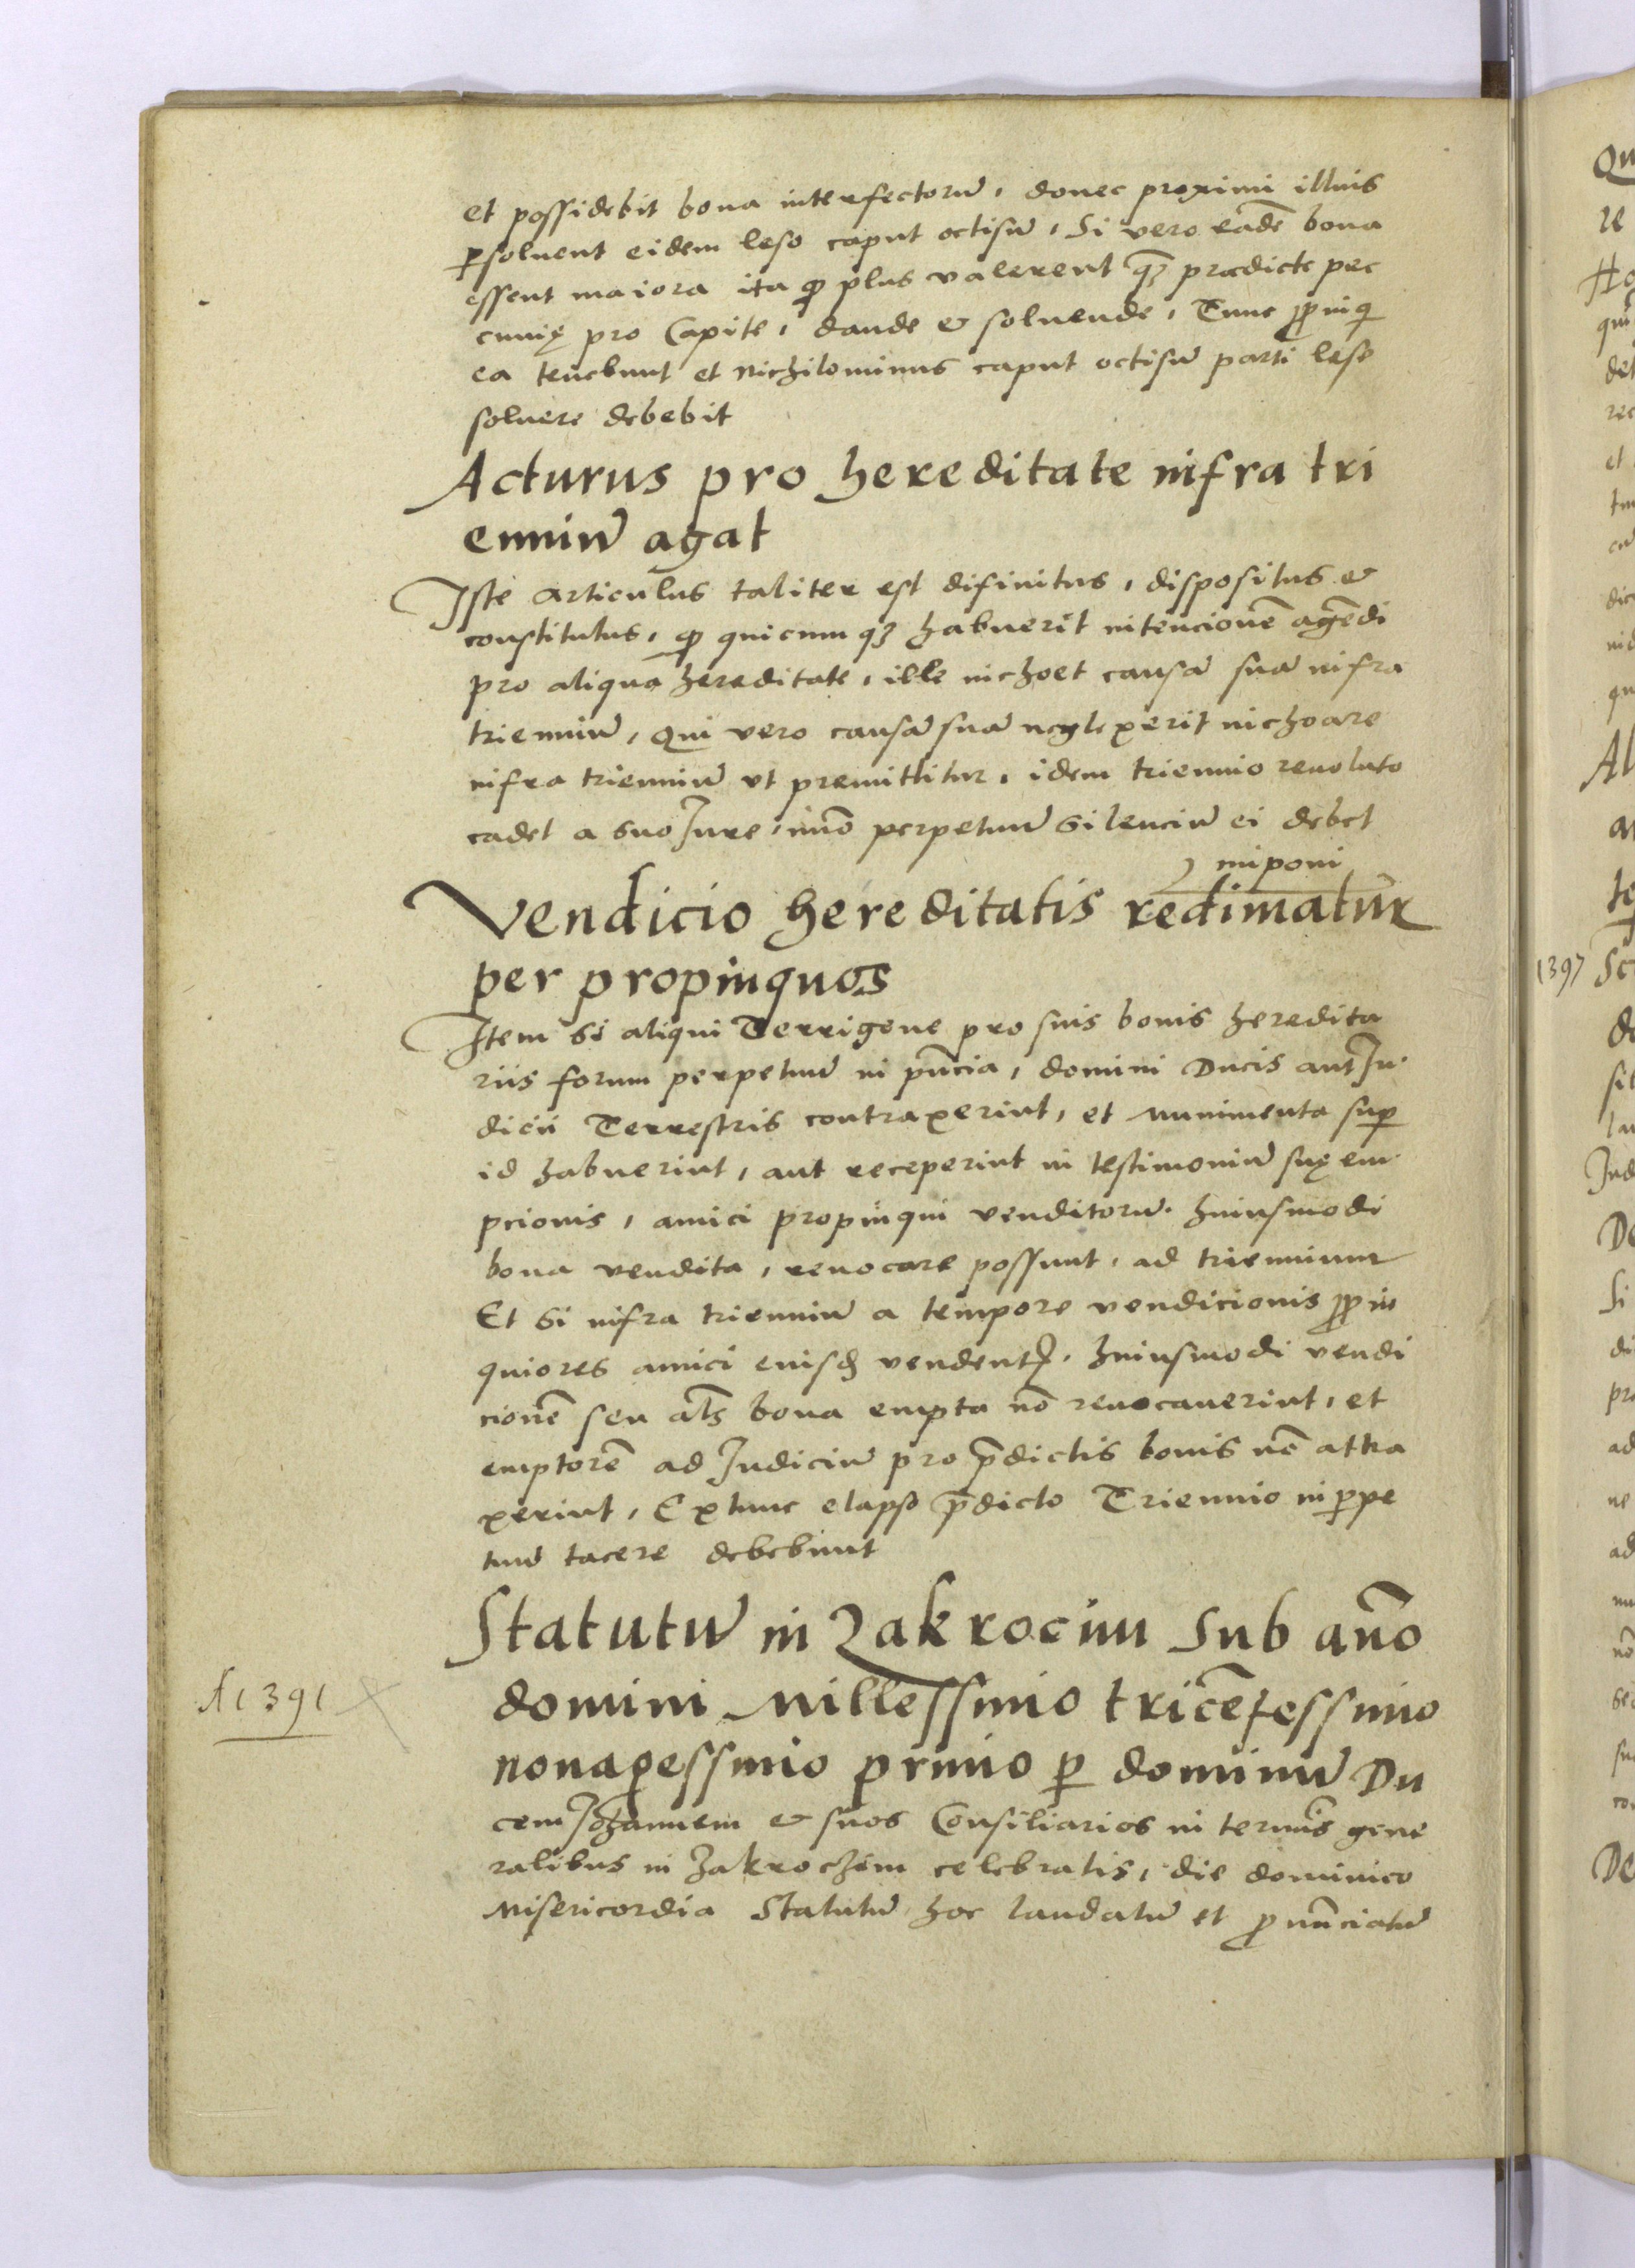 et possidebit bona interfectorū, donec proximi illius
ꝑsoluent eidem leso caput octisū, Si vero eadē bona
essent maiora ita ꝙ plus valerent qꝫ prædicte pec
cunię pro Capite, dande & soluende, Tunc ꝓpinqi
ea tenebunt et nichilominus caput octisū parti leso
soluere debebit
Acturus pro hereditate infra tri
enniū agat
Iste articulus taliter est difinitus, dispositus &
constitutus, ꝙ quicumqꝫ habuerit intencionē agēdi
pro aliqua hereditate, ille inchoet causā suā infra
trienniū, Qui vero causā suā neglexerit inchoare
infra trienniū vt premittitur, idem triennio reuoluto
cadet a suo Iure, imō perpetuū silenciū ei debet
imponi
Vendicio hereditatis redimatur
per propinquos
Item si aliqui Terrigene pro suis bonis heredita
riis forum perpetuū in pn̄cia, domini Ducis aut Iu
dicii Terrestris contraxerint, et munimenta suꝑ
id habuerint, aut receperint in testimoniū suę em
pcionis, amici propinqui venditorū. huiusmodi
bona vendita, reuocare possunt, ad triennium
Et si infra trienniū a tempore vendicionis ꝓpin
quiores amici eiusd vendentꝭ. huiusmodi vendi
cionē seu al̄s bona empta nō reuocauerint, et
emptorē ad Iudiciū pro p̄dictis bonis nō attra
xerint, Extunc elapso p̄dicto Triennio in ꝑpe
tuū tacere debebunt
Statutū in Zakrocim Sub an̄o
domini Millessimo tricētessimo
nonagessimo primo ꝑ dominū Du
cem Johannem & suos Consiliarios in termīs gene
ralibus in Zakrochim celebratis, die dominico
Misericordia Statutū hoc laudatū et ꝓnūnciatū
A 1391
1397